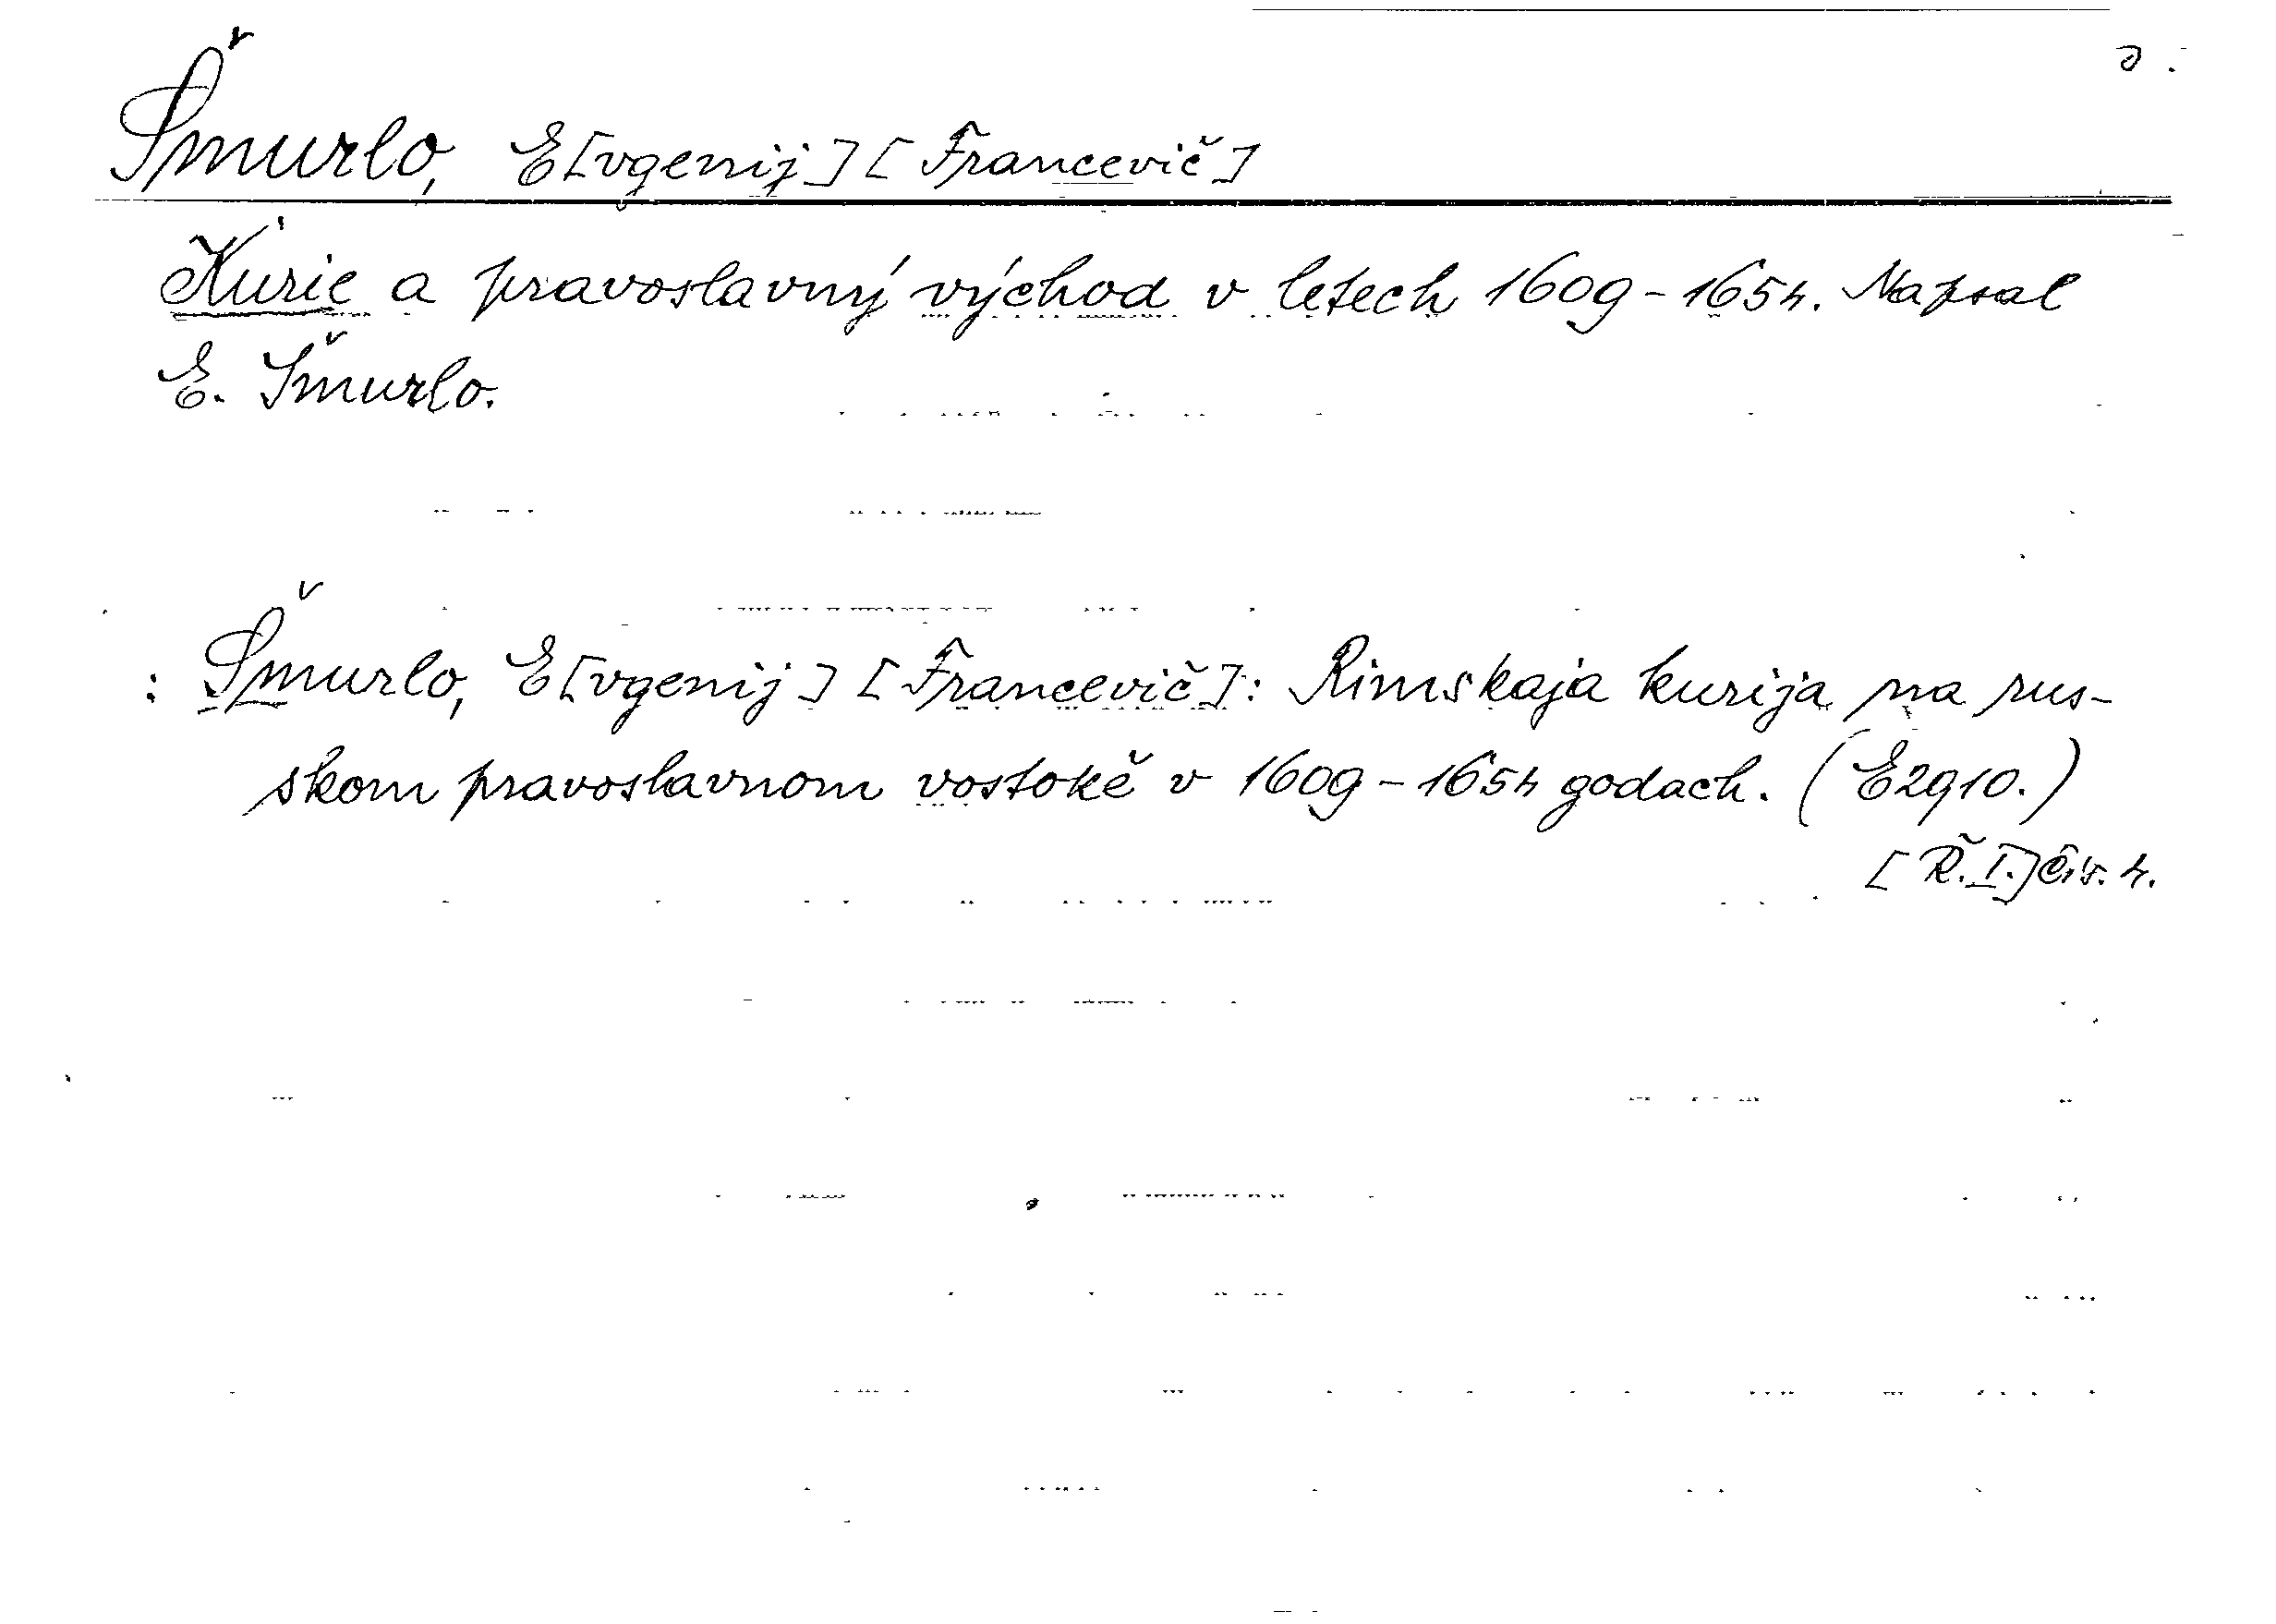 Šmurlo, E[vgenij] [Francevič]
Kurie a pravoslavný východ v letech 1609-1654. Napsal
E. Šmurlo.
: Šmurlo, E[vgenij] [Francevič]: Rimskaja kurija na rus-
skom pravoslavnom vostokě v 1609-1654 godach. (E2910.)
[Ř. I.] čís. 4.